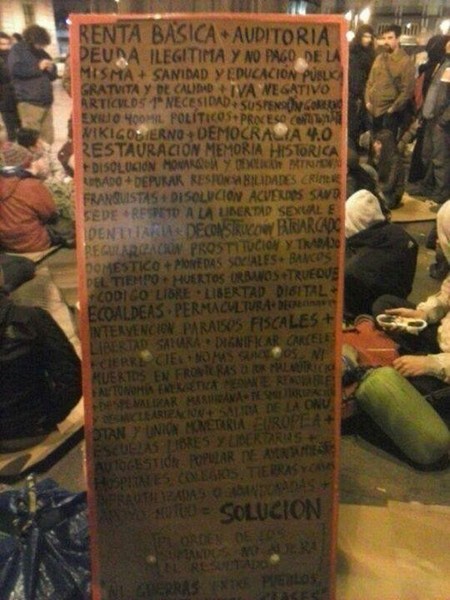 RENTA BÁSICA + AUDITORIA
DEUDA ILEGITIMA Y NO PAGO DE LA
MISMA + SANIDAD Y EDUCACIÓN PÚBLICA
GRATUITA Y DE CALIDAD + IVA NEGATIVO
ARTICULOS 1ª NECESIDAD + SUSPENSIÓN GOBIERNO
EXILIO 400MIL POLITICOS + PROCESO CONSTITUYENTE
WIKIGOBIERNO + DEMOCRACIA 4.0
RESTAURACIÓN MEMORIA HISTÓRICA
+ DISOLUCIÓN MONARQUIA Y DEVOLUCIÓN PATRIMONIO
ROBADO + DEPURAR RESPONSABILIDADES CRIMENES
FRANQUISTAS + DISOLUCIÓN ACUERDOS SANTA
SEDE + RESPETO A LA LIBERTAD SEXUAL E
IDENTITARIA + DECONSTRUCCIÓN PATRIARCADO
REGULARIZACIÓN PROSTITUCIÓN Y TRABAJO
DOMESTICO + MONEDAS SOCIALES + BANCOS
DEL TIEMPO + HUERTOS URBANOS + TRUEQUE
+ CODIGO LIBRE + LIBERTAD DIGITAL +
ECOALDEAS + PERMACULTURA + DECRECIMIENTO
INTERVENCION PARAISOS FISCALES +
LIBERTAD SAHARA + DIGNIFICAR CARCELES
+ CIERRE CIES + NO MAS NI
MUERTOS EN FRONTERAS O POR MALNUTRICIÓN
+ AUTONOMÍA ENERGETICA MEDIANTE RENOVABLES
+ DESPENALIZAR MARIHUANA + DESMILITARIZACIÓN
Y DESNUCLEARIZACIÓN + SALIDA DE LA ONU
OTAN Y UNIÓN MONETARIA EUROPEA +
ESCUELAS LIBRES Y LIBERTARIAS +
AUTOGESTIÓN POPULAR DE AYUNTAMIENTOS
HOSPITALES, COLEGIOS, TIERRAS Y CASAS
INFRAUTILIZADAS O ABANDONADAS +
APOYO MUTUO = SOLUCION
EL ORDEN DE LOS
SUMANDOS NO ALTERA
EL RESULTADO
"NI GUERRAS ENTRE PUEBLOS,
CLASES"